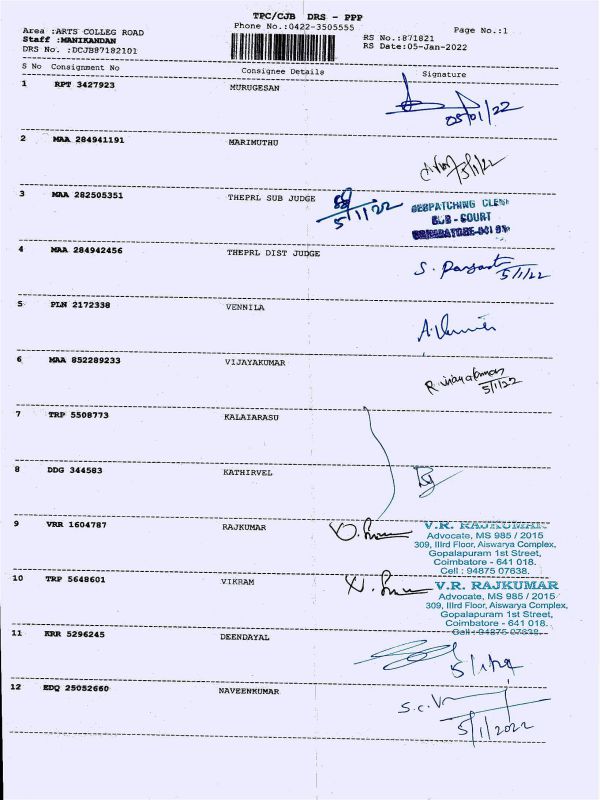 TPC/CJB DRS - PPP
Phone No.:0422-3505555
Area :ARTS COLLEG ROAD
Staff :MANIKANDAN
DRS No. :DCJB87182101
RS No.:871821
RS Date:05-Jan-2022
Page No.:1
S No Consignment No Consignee Details Signature
1 RPT 3427923 MURUGESAN
05/01/22
2 MAA 284941191 MARIMUTHU
5/1/22
3 MAA 282505351 THEPRL SUB JUDGE
5/1/22
DESPATCHING CLERK
SUB - COURT
4 MAA 284942456 THEPRL DIST JUDGE
5/1/22
5 PLN 2172338 VENNILA
6 MAA 852289233 VIJAYAKUMAR
5/1/22
7 TRP 5508773 KALAIARASU
8 DDG 344583 KATHIRVEL
9 VRR 1604787 RAJKUMAR
V.R. RAJKUMAR
Advocate, MS 985 / 2015
309, IIIrd Floor, Aiswarya Complex,
Gopalapuram 1st Street,
Coimbatore - 641 018.
Cell : 94875 07638.
10 TRP 5648601 VIKRAM
V.R. RAJKUMAR
Advocate, MS 985 / 2015
309, IIIrd Floor, Aiswarya Complex,
Gopalapuram 1st Street,
Coimbatore - 641 018.
Cell : 94875 07638.
11 KRR 5296245 DEENDAYAL
12 EDQ 25052660 NAVEENKUMAR
S.C.V
5/1/2022